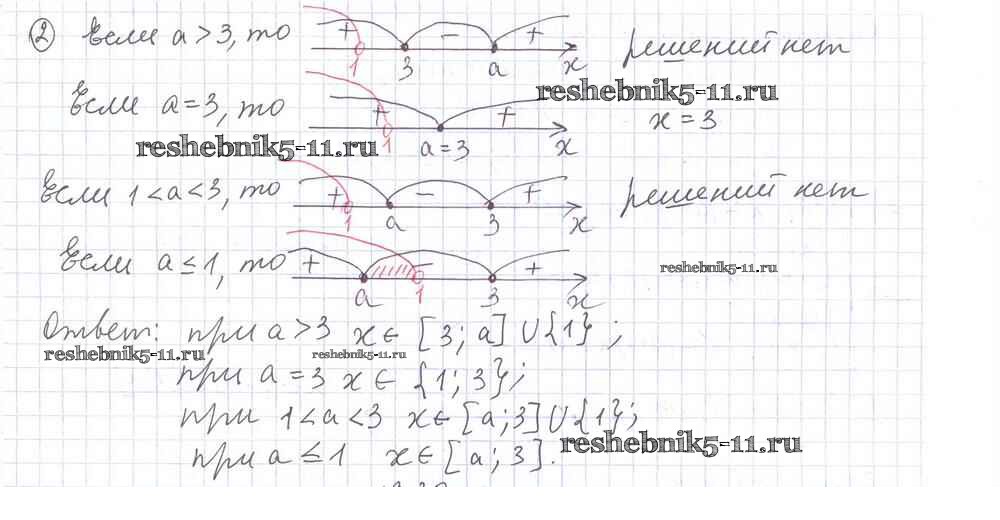 ② Если a > 3, то + - + 1 3 a x решений нет
reshebnik5-11.ru
Если a = 3, то + + 1 a = 3 x x = 3
reshebnik5-11.ru
Если 1 < a < 3, то + - + 1 a 3 x решений нет
Если a ≤ 1, то + - + a 1 3 x
reshebnik5-11.ru
Ответ: при a > 3 x ∈ [3; a] ∪ {1};
reshebnik5-11.ru reshebnik5-11.ru
при a = 3 x ∈ {1; 3};
при 1 < a < 3 x ∈ [a; 3] ∪ {1};
reshebnik5-11.ru
при a ≤ 1 x ∈ [a; 3].